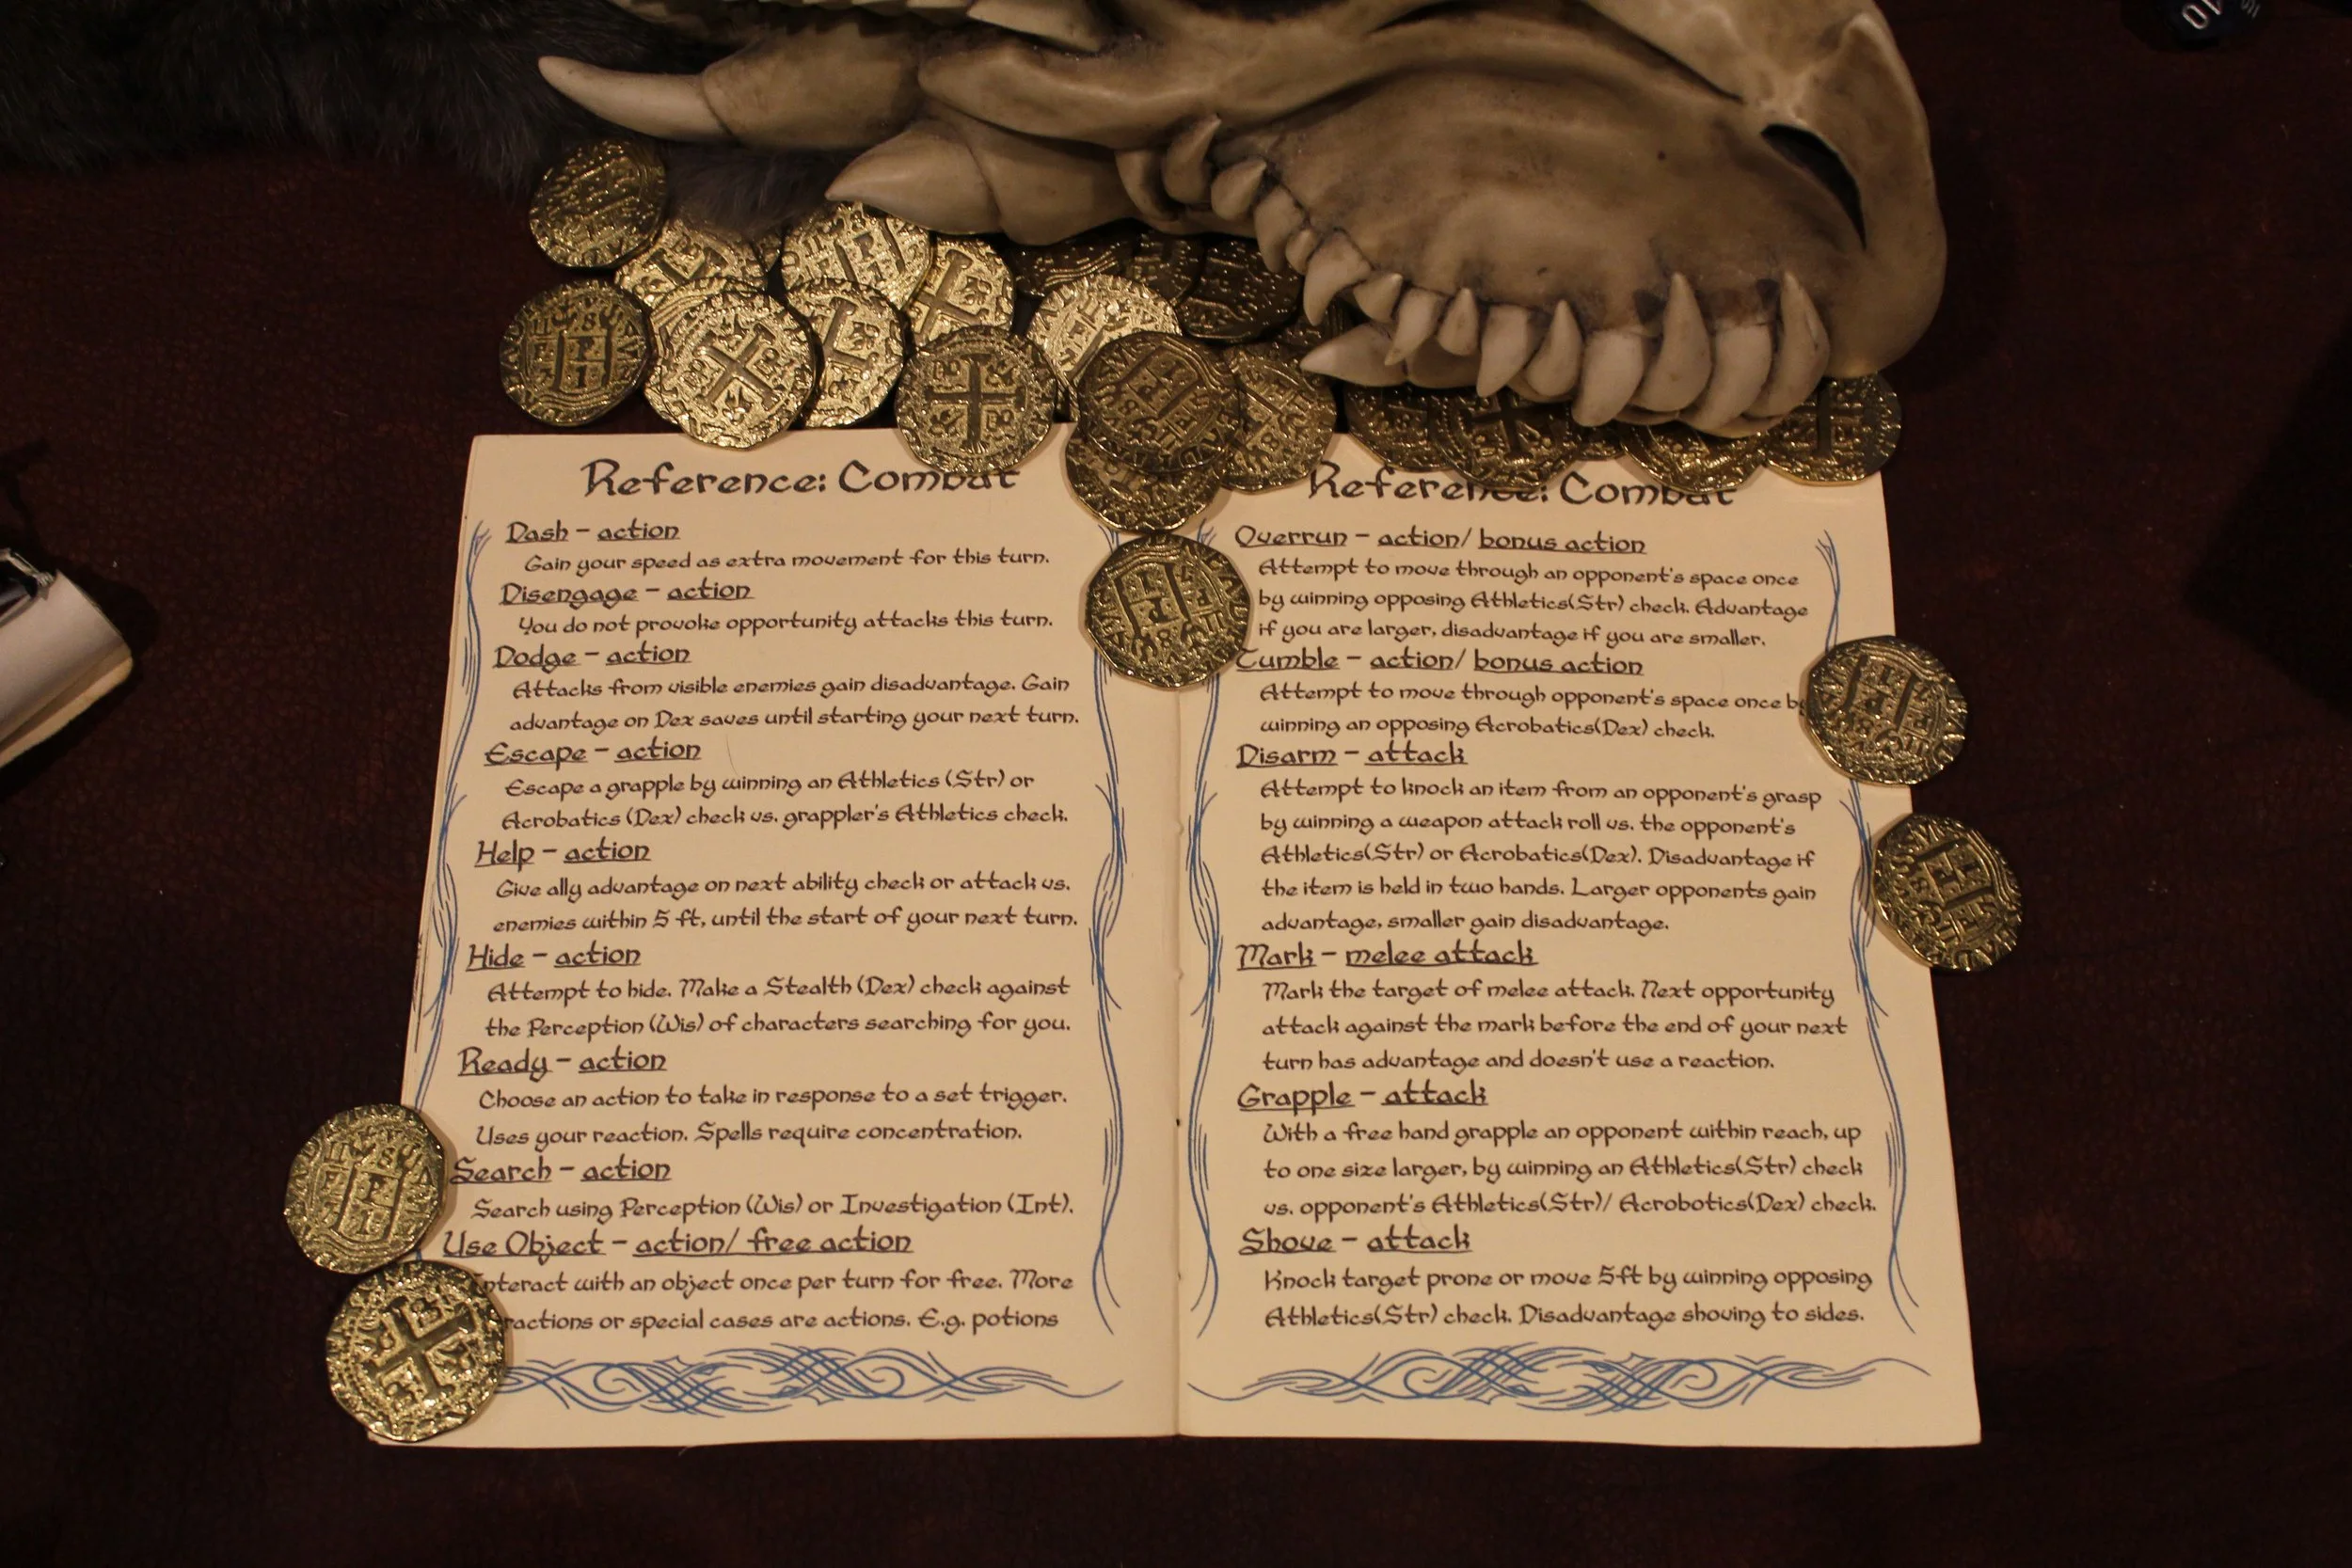 Reference: Combat
Dash - action
Gain your speed as extra movement for this turn.
Disengage - action
You do not provoke opportunity attacks this turn.
Dodge - action
Attacks from visible enemies gain disadvantage. Gain
advantage on Dex saves until starting your next turn.
Escape - action
Escape a grapple by winning an Athletics (Str) or
Acrobatics (Dex) check vs. grappler's Athletics check.
Help - action
Give ally advantage on next ability check or attack vs.
enemies within 5 ft, until the start of your next turn.
Hide - action
Attempt to hide. Make a Stealth (Dex) check against
the Perception (Wis) of characters searching for you.
Ready - action
Choose an action to take in response to a set trigger.
Uses your reaction. Spells require concentration.
Search - action
Search using Perception (Wis) or Investigation (Int).
Use Object - action/ free action
Interact with an object once per turn for free. More
or special cases are actions. E.g. potions
Reference: Combat
Overrun - action/ bonus action
Attempt to move through an opponent's space once
by winning opposing Athletics(Str) check. Advantage
if you are larger, disadvantage if you are smaller.
Tumble - action/ bonus action
Attempt to move through opponent's space once by
winning an opposing Acrobatics(Dex) check.
Disarm - attack
Attempt to knock an item from an opponent's grasp
by winning a weapon attack roll vs. the opponent's
Athletics(Str) or Acrobatics(Dex). Disadvantage if
the item is held in two hands. Larger opponents gain
advantage, smaller gain disadvantage.
Mark - melee attack
Mark the target of melee attack. Next opportunity
attack against the mark before the end of your next
turn has advantage and doesn't use a reaction.
Grapple - attack
With a free hand grapple an opponent within reach, up
to one size larger, by winning an Athletics(Str) check
vs. opponent's Athletics(Str)/ Acrobotics(Dex) check.
Shove - attack
Knock target prone or move 5ft by winning opposing
Athletics(Str) check. Disadvantage shoving to sides.
10